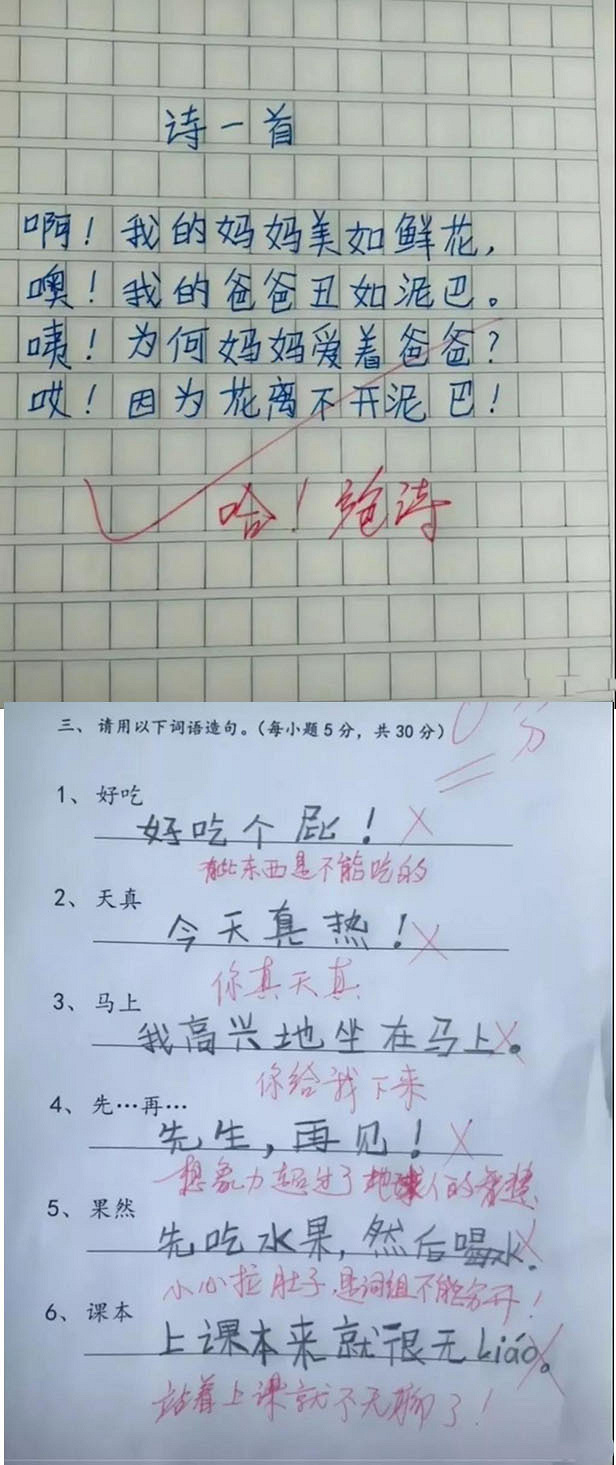 诗一首
啊！我的妈妈美如鲜花，
噢！我的爸爸丑如泥巴。
咦！为何妈妈爱着爸爸？
哎！因为花离不开泥巴！
哈！绝诗
三、请用以下词语造句。（每小题5分，共30分）
0分
1、好吃
好吃个屁！
有些东西是不能吃的
2、天真
今天真热！
你真天真
3、马上
我高兴地坐在马上。
你给我下来
4、先…再…
先生，再见！
想象力超过了地球人的智慧
5、果然
先吃水果，然后喝水.
小心拉肚子，是词组不能分开！
6、课本
上课本来就很无liáo。
站着上课就不无聊了！